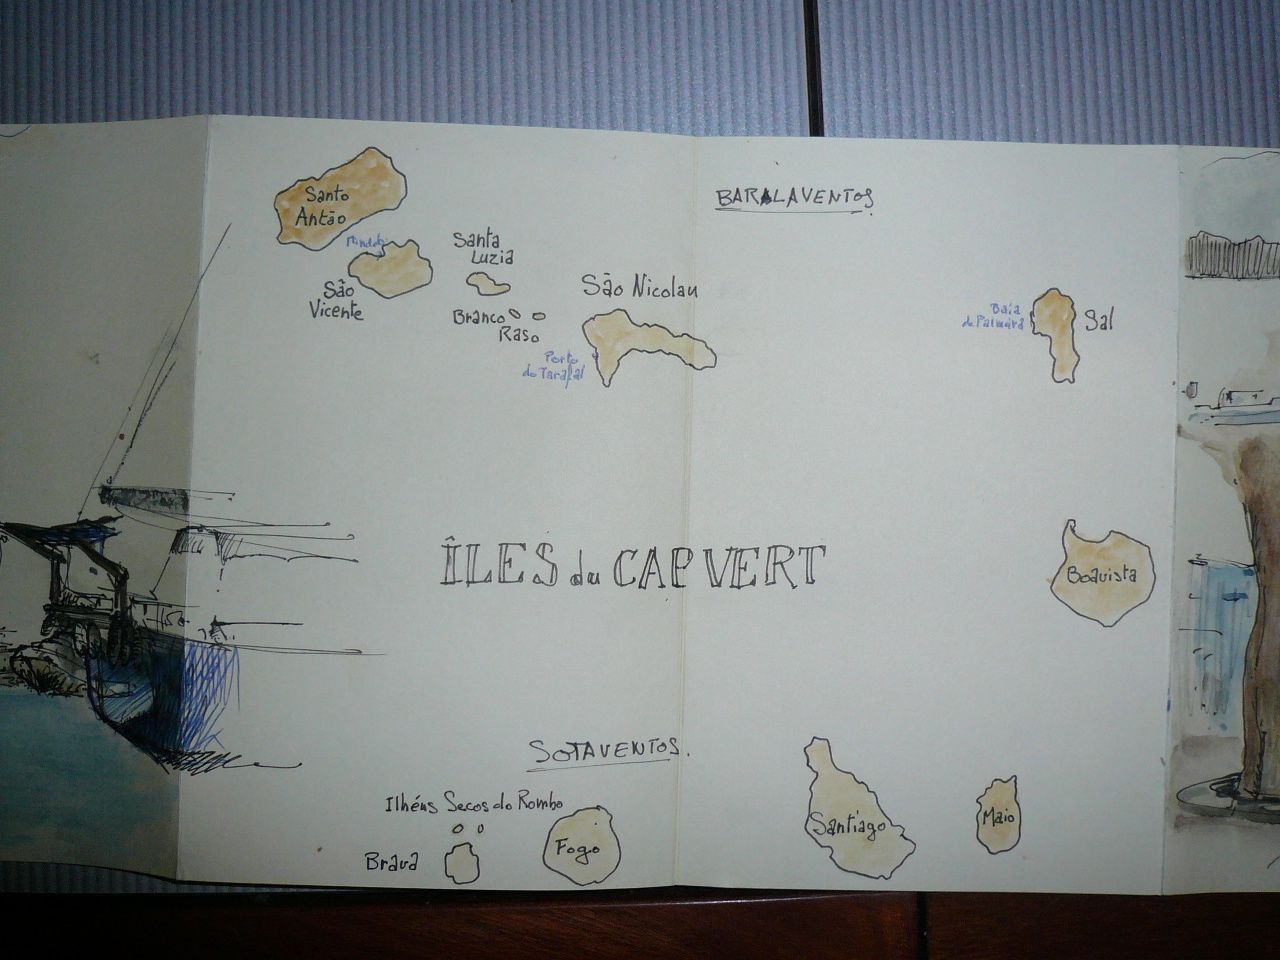 Santo
Antão
BARALAVENTOS
Mindelo
São
Vicente
Santa
Luzia
Branco
Raso
São Nicolau
Porto
do Tarafal
Baía
de Palmeira
Sal
ÎLES du CAP VERT
Boavista
SOTAVENTOS.
Ilhéus Secos do Rombo
Brava
Fogo
Santiago
Maio